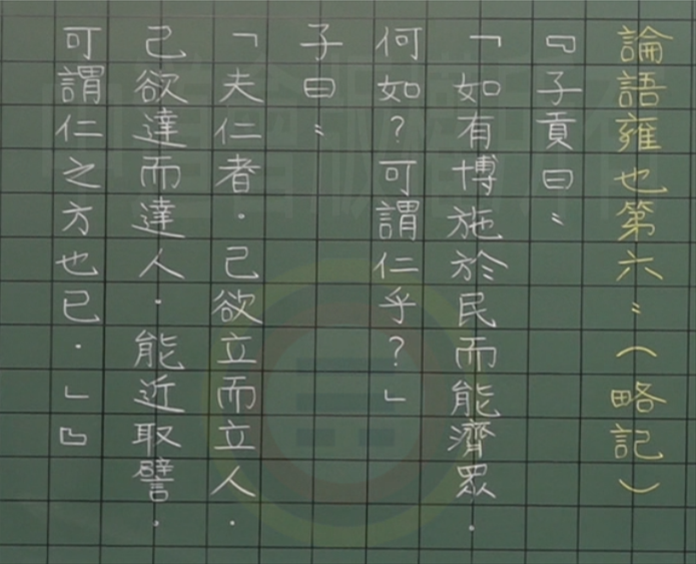 論語雍也第六：（略記）
『子貢曰：
「如有博施於民而能濟眾．
何如？可謂仁乎？」
子曰：
「夫仁者．己欲立而立人．
己欲達而達人．能近取譬．
可謂仁之方也已．」』